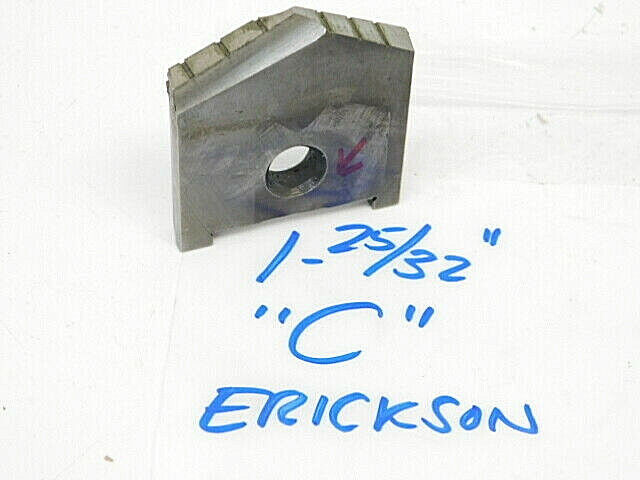 1-25/32"
"C"
ERICKSON